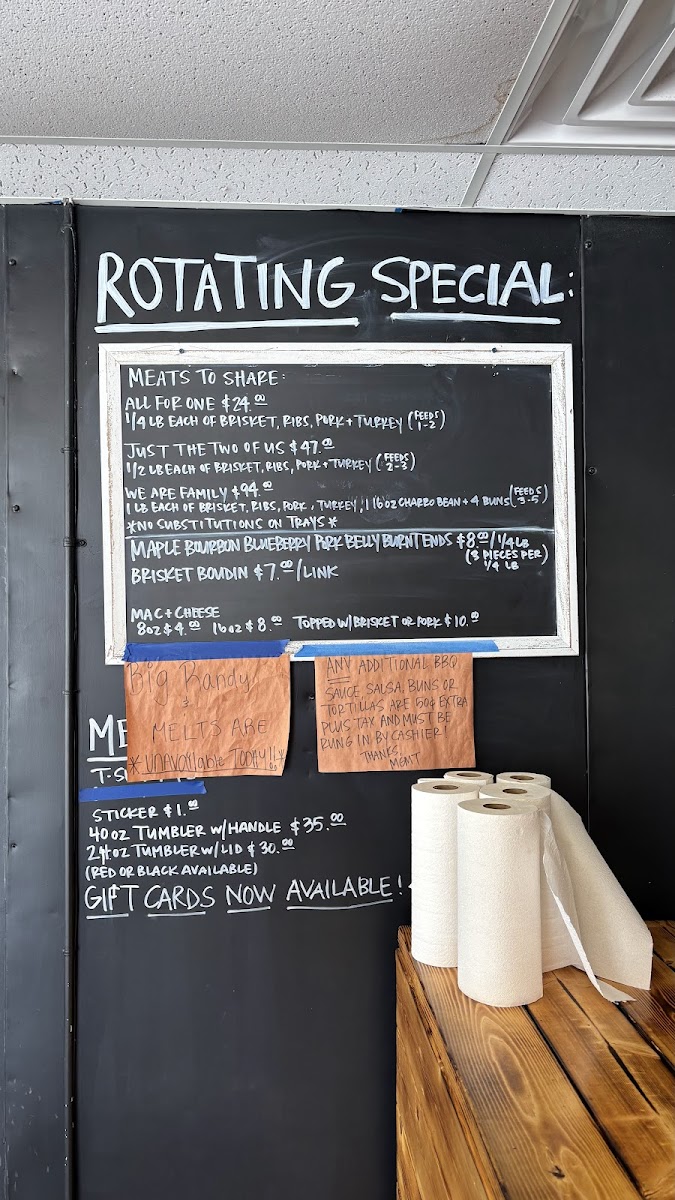 ROTATING SPECIAL:
MEATS TO SHARE:
ALL FOR ONE $24.00
1/4 LB EACH OF BRISKET, RIBS, PORK + TURKEY (FEEDS 1-2)
JUST THE TWO OF US $47.00
1/2 LB EACH OF BRISKET, RIBS, PORK + TURKEY (FEEDS 2-3)
WE ARE FAMILY $94.00
1 LB EACH OF BRISKET, RIBS, PORK, TURKEY, 1 16oz CHARRO BEAN + 4 BUNS (FEEDS 3-5)
*NO SUBSTITUTIONS ON TRAYS*
MAPLE BOURBON BLUEBERRY PORK BELLY BURNT ENDS $8.00/1/4 LB
(8 PIECES PER 1/4 LB)
BRISKET BOUDIN $7.00/LINK
MAC + CHEESE
8oz $4.00 16oz $8.00 TOPPED W/BRISKET OR PORK $10.00
Big Randy
&
MELTS ARE
*unavailable
ANY ADDITIONAL BBQ
SAUCE, SALSA, BUNS OR
TORTILLAS ARE 50¢ EXTRA
PLUS TAX AND MUST BE
RUNG IN BY CASHIER!
THANKS,
MGMT
STICKER $1.00
40oz TUMBLER W/HANDLE $35.00
24oz TUMBLER W/LID $30.00
(RED OR BLACK AVAILABLE)
GIFT CARDS NOW AVAILABLE!